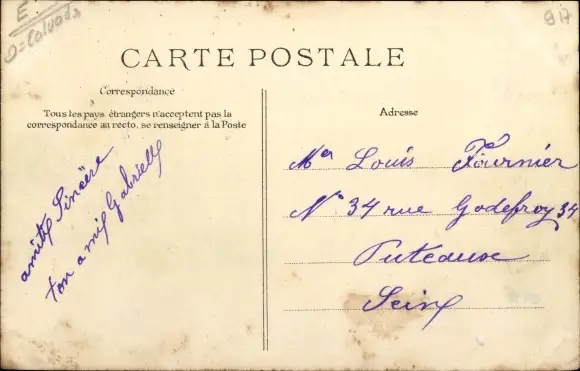 E
D=Calvados
917
CARTE POSTALE
Correspondance
Tous les pays étrangers n'acceptent pas la
correspondance au recto, se renseigner à la Poste
amitié Sincère
ton amie Gabrielle
Adresse
Mer Louis Fournier
No 34 rue Godefroy 34
Puteaux
Seine